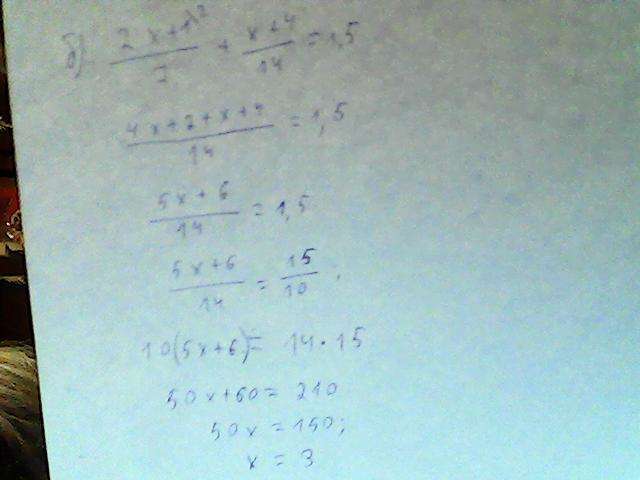 б) (2x+1)/7 \2 + (x+4)/14 = 1,5
(4x+2+x+4)/14 = 1,5
(5x+6)/14 = 1,5
(5x+6)/14 = 15/10;
10(5x+6) = 14·15
50x+60 = 210
50x = 150;
x = 3